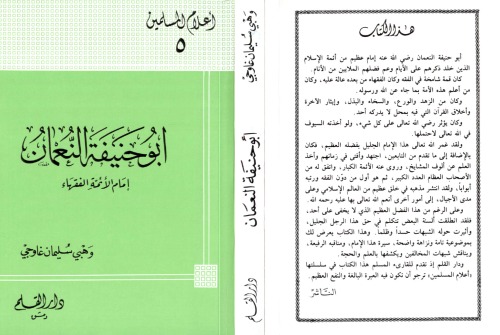 أعلام المسلمين
٥
أبو حنيفة النعمان
إمام الأئمة الفقهاء
وهبي سليمان غاوجي
دار القلم
دمشق
وهبي سليمان غاوجي
أبو حنيفة النعمان
دار القلم
هذا الكتاب
أبو حنيفة النعمان رضي الله عنه إمام عظيم من أئمة الإسلام
الذين خلد ذكرهم على الأيام وعم فضلهم الملايين من الأنام.
كان قمة شامخة في الفقه وكان الفقهاء من بعده عالة عليه، وكان
من أعلم هذه الأمة بما جاء عن الله ورسوله.
وكان من الزهد والورع، والسخاء والبذل، وإيثار الآخرة
وأخلاق القرآن التي فيه بمحل لا يدركه أحد.
وكان يؤثر رضي الله تعالى على كل شيء، ولو أخذته السيوف
في الله تعالى لاحتملها.
ولقد غمر الله تعالى هذا الإمام الجليل بفضله العظيم، فكان
بالإضافة إلى ما تقدم من التابعين، اجتهد وأفتى في زمانهم وأخذ
العلم عن ألوف المشايخ، وروى عنه الأئمة الكبار، واتفق له من
الأصحاب العظام العدد الكبير، ثم هو أول من دوّن الفقه ورتبه
أبواباً، ولقد انتشر مذهبه في خلق عظيم من العالم الإسلامي وعلى
مدى الأجيال، إلى أمور أخرى أنعم الله تعالى بها عليه رحمه الله.
وعلى الرغم من هذا الفضل العظيم الذي لا يخفى على أحد،
فلقد انطلقت ألسنة البعض تتكلم في حق هذا الرجل الجليل،
وأثيرت حوله الشبهات حسداً وظلماً. وهذا الكتاب يعرض لك
بموضوعية تامة ونزاهة واضحة، سيرة هذا الإمام، ومناقبه الرفيعة،
ويناقش شبهات المخالفين ويكشفها بالعلم والحجة.
ودار القلم إذ تقدم للقارىء المسلم هذا الكتاب في سلسلتها
«أعلام المسلمين» ترجو أن تكون فيه العبرة البالغة والنفع العظيم.
الناشر